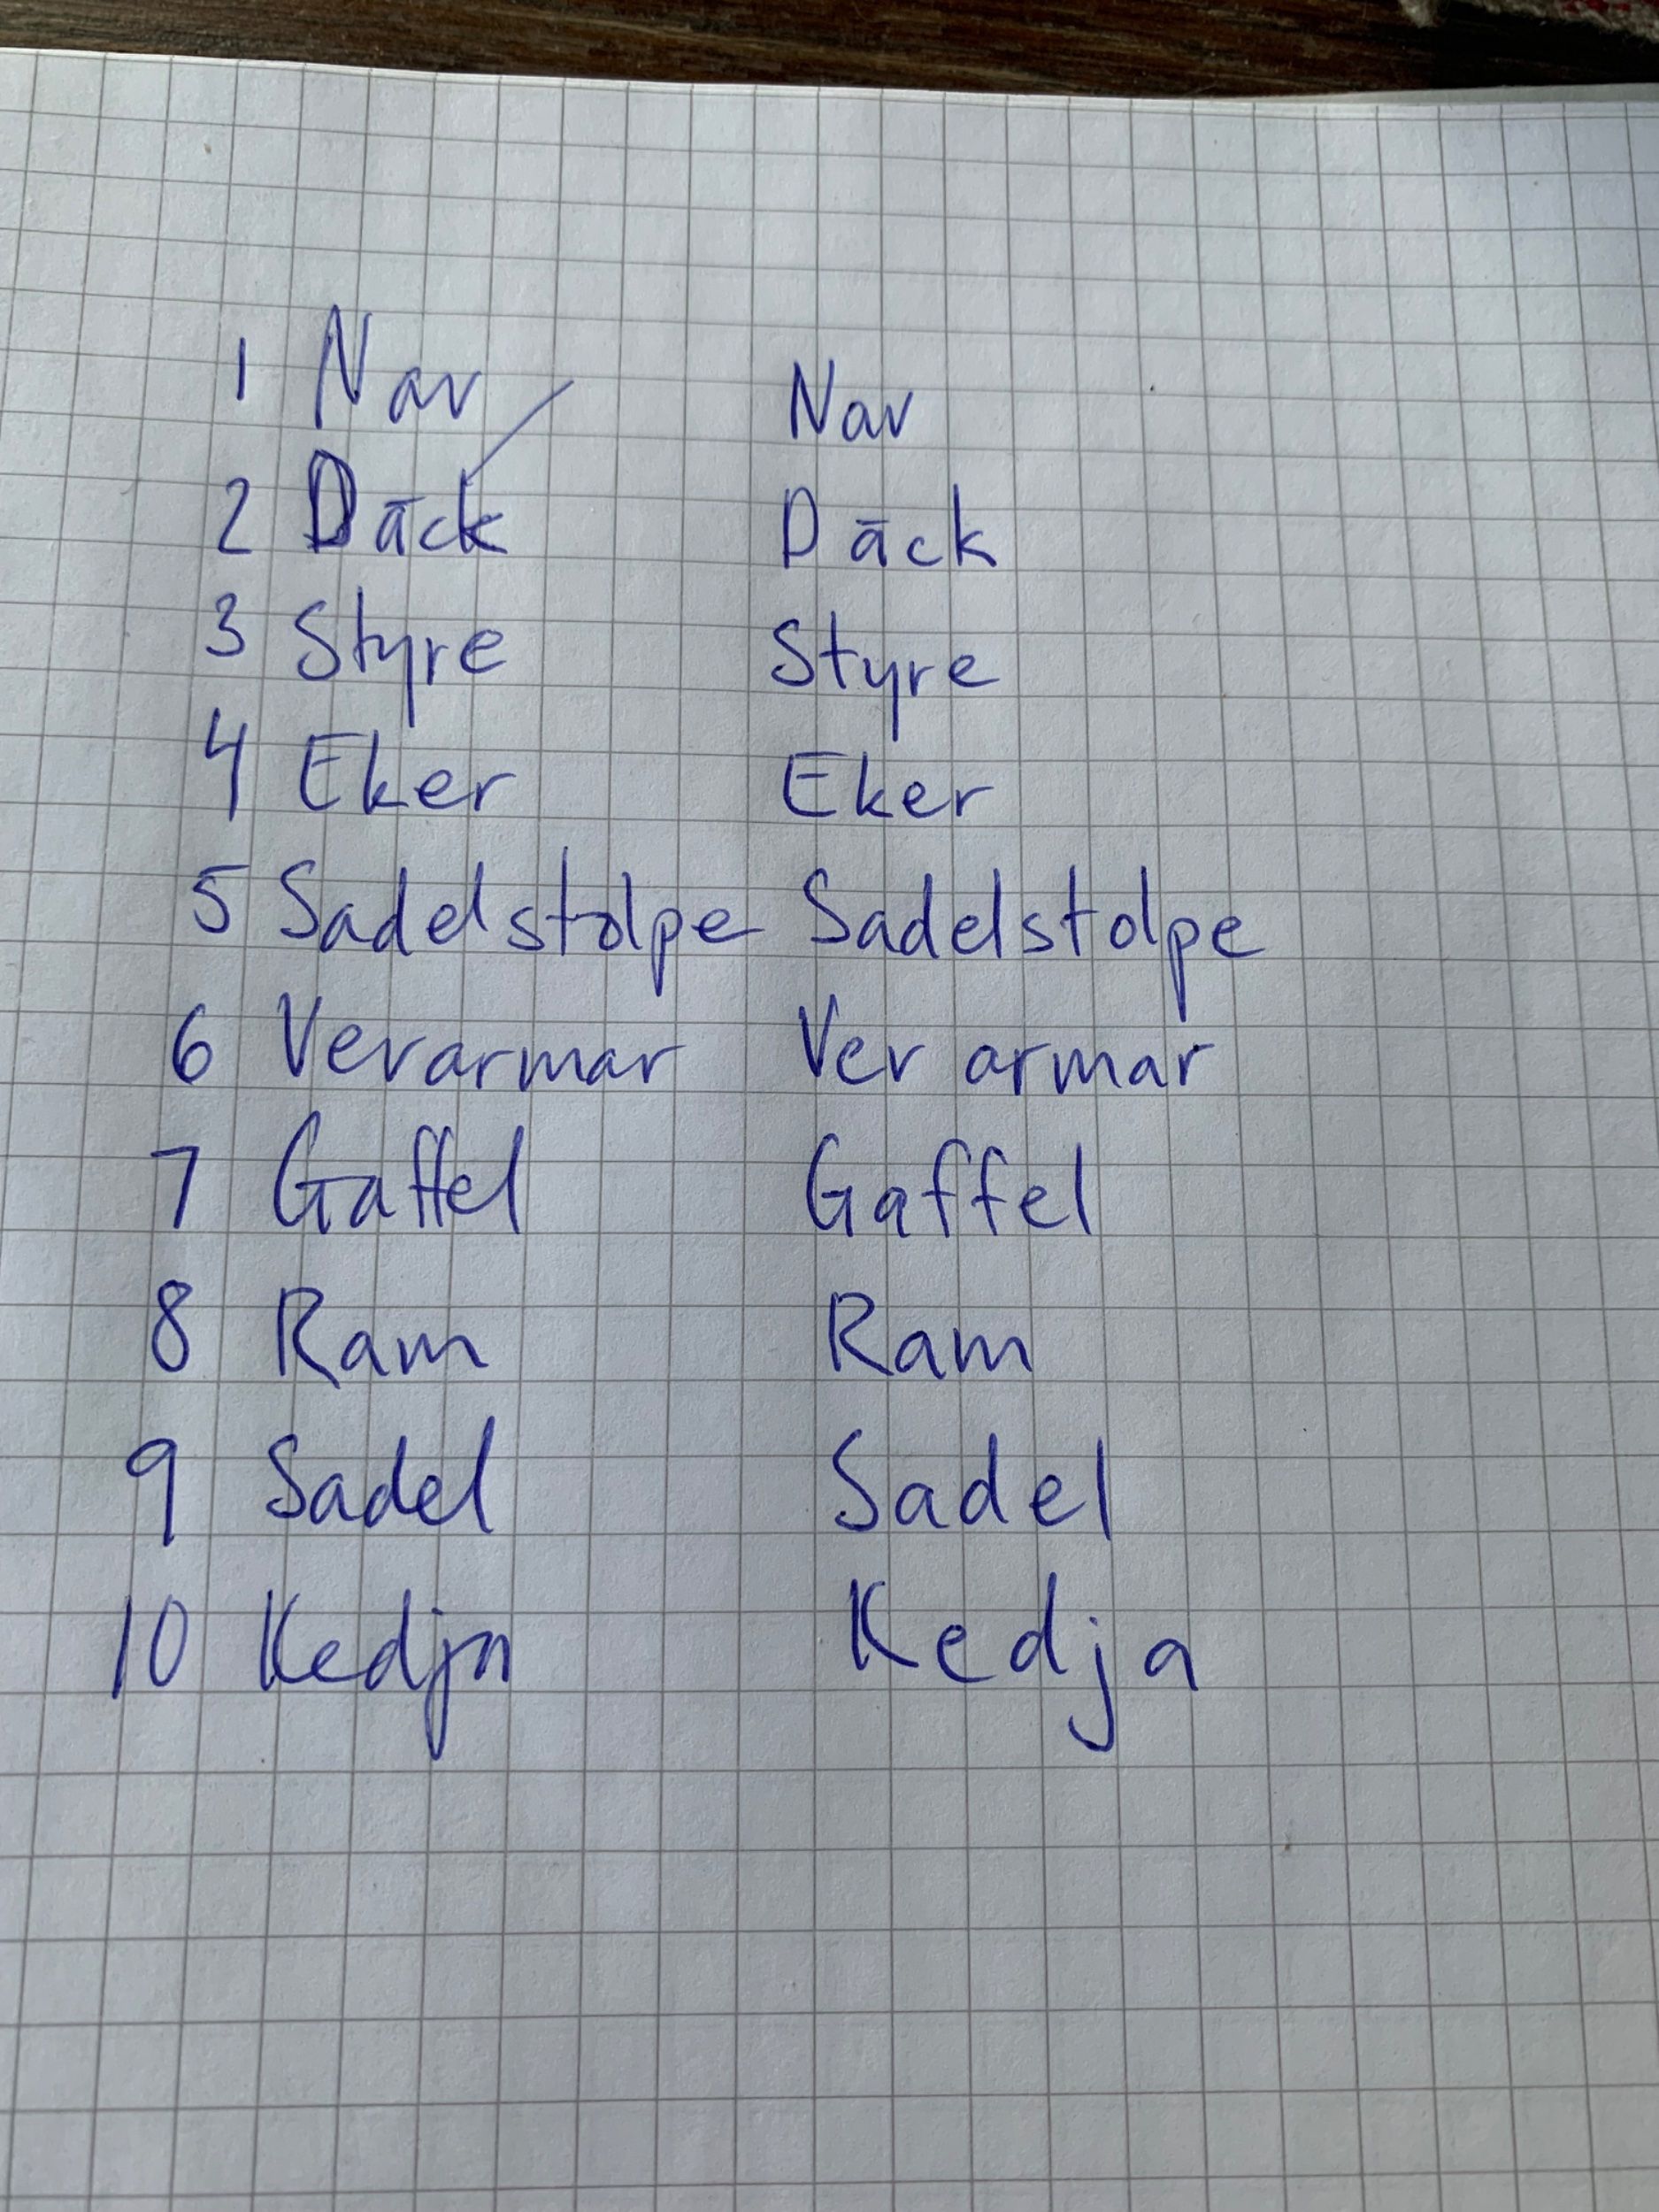 1 Nav Nav
2 Däck Däck
3 Styre Styre
4 Eker Eker
5 Sadelstolpe Sadelstolpe
6 Vevarmar Vev armar
7 Gaffel Gaffel
8 Ram Ram
9 Sadel Sadel
10 Kedja Kedja